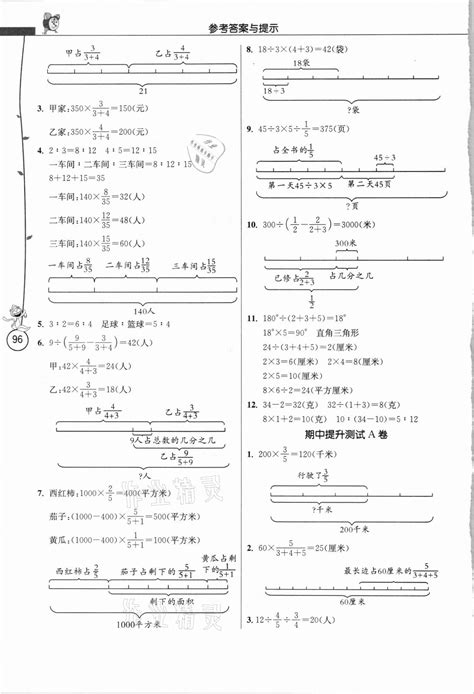 参考答案与提示
甲占3/(3+4) 乙占4/(3+4)
21
3. 甲家:350×3/(3+4)=150(元)
乙家:350×4/(3+4)=200(元)
4. 2∶3=8∶12 4∶5=12∶15
一车间∶二车间∶三车间=8∶12∶15
8+12+15=35
一车间:140×8/35=32(人)
二车间:140×12/35=48(人)
三车间:140×15/35=60(人)
一车间占8/35 二车间占12/35 三车间占15/35
140人
5. 3∶2=6∶4 足球∶篮球=5∶4
6. 9÷(9/(5+9)-3/(3+4))=42(人)
甲:42×4/(4+3)=24(人)
乙:42×3/(4+3)=18(人)
甲占4/(4+3) 乙占3/(4+3)
9人占总数的几分之几
乙占9/(5+9)
7. 西红柿:1000×2/5=400(平方米)
茄子:(1000-400)×5/(5+1)=500(平方米)
黄瓜:(1000-400)×1/(5+1)=100(平方米)
黄瓜占剩下的1/(5+1)
西红柿占2/5 茄子占剩下的5/(5+1)
剩下的面积
1000平方米
96
8. 18÷3×(4+3)=42(袋)
18袋
18÷3
?袋
9. 45÷3×5÷1/5=375(页)
占全书的1/5 45÷3
第一天45÷3×5 第二天45页
?页
10. 300÷(1/2-2/(2+3))=3000(米)
300米
已修占2/(2+3) 占几分之几
1/2
11. 180°÷(2+3+5)=18°
18°×5=90° 直角三角形
24÷(3+4+5)=2(厘米)
2×3=6(厘米) 2×4=8(厘米)
2×5=10(厘米)
24÷(3+3+2)=3(厘米)
3×2=6(厘米) 3×3=9(厘米)
12. 34-2=32(克) 32÷(3+1)=8(克)
8×1+2=10(克) 10∶(34-10)=5∶12
期中提升测试A卷
1. 200×3/5=120(千米)
行驶了3/5
?千米
200千米
2. 60×5/(3+4+5)=25(厘米)
最长边占60厘米的5/(3+4+5)
60厘米
3. 12÷4/5÷3/4=20(人)
作业精灵
作业精灵